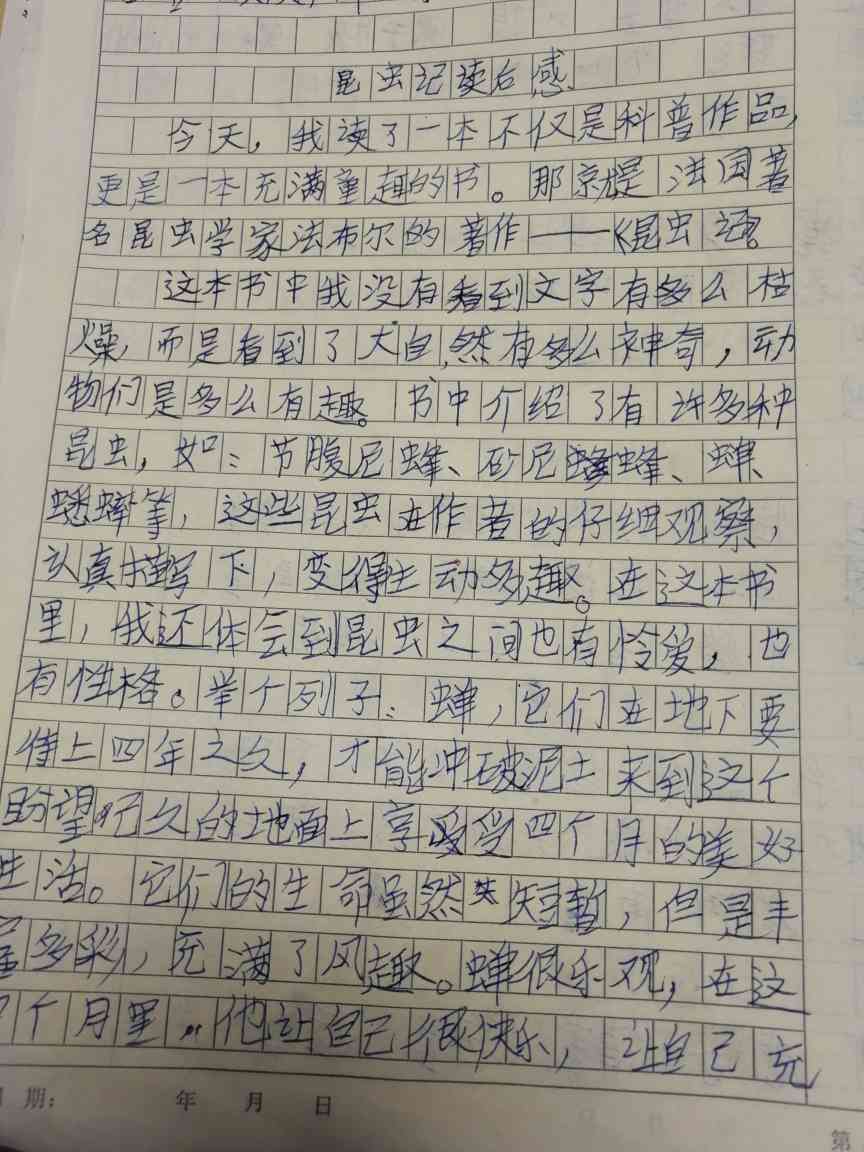 昆虫记读后感
今天，我读了一本不仅是科普作品，
更是一本充满童趣的书。那就是法国著
名昆虫学家法布尔的著作——《昆虫记》。
这本书中我没有看到文字有多么枯
燥，而是看到了大自然有多么神奇，动
物们是多么有趣。书中介绍了有许多种
昆虫，如：节腹尼蜂、砂尼蜂、蝉、
蟋蟀等，这些昆虫在作者的仔细观察，
认真描写下，变得生动多趣。在这本书
里，我还体会到昆虫之间也有怜爱，也
有性格。举个列子：蝉，它们在地下要
待上四年之久，才能冲破泥土来到这个
盼望已久的地面上享受四个月的美好
生活。它们的生命虽然短暂，但是丰
富多彩，充满了风趣。蝉很乐观，在这
个月里，他让自己很快乐，让自己充
期： 年 月 日
第